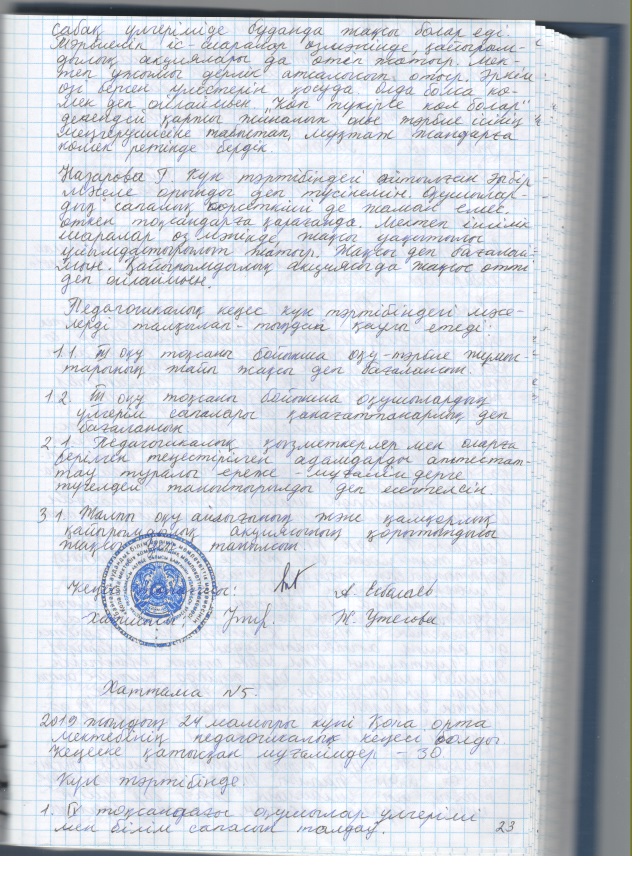 сабақ үлгеріміде бұданда жақсы болар еді.
Мәрмелік іс-шаралар өз мәнінде, қайырым-
дылық акциялары да өтеп жатыр. Мек-
теп ұжымы дерлік атсалысып отыр. Әркім
өзі берген үлестерін қосуда алда болса кө-
мек деп ойлаймын "Көп түкірсе көл болар"
демекдей қаржы жиналып оны тәрбие ісінің
меңгерушісіне табыстап, мұқтаж жандарға
көмек ретінде бердік.
Назарова Г. Күн тәртібіндегі айтылған әрбір
мәселе орынды деп түсінемін. Оқушылар-
дың сапалық көрсеткіші де жаман емес
өткен тоқсандарға қарағанда. Мектеп ішілік
шаралар өз мәнінде, жақсы уақытылы
ұйымдастырылып жатыр. Жақсы деп бағалай-
мын. Қайырымдылық акциясыда жақсы өтті
деп ойлаймын.
Педагогикалық кеңес күн тәртібіндегі мәсе-
лерді талқылап-тыңдап қаулы етеді:
1.1. ІІІ оқу тоқсаны бойынша оқу-тәрбие жұмыс-
тарының жайы жақсы деп бағалансын.
1.2. ІІІ оқу тоқсаны бойынша оқушылардың
үлгерім сапалары қанағаттанарлық деп
бағалансын
2.1. Педагогикалық қызметкерлер мен оларға
берілген теңестірілген адамдарды аттестат-
тау туралы ереже мұғалімдерге
түгелдей таныстырылды деп есептелсін.
3.1. Жалпы оқу айлығының және қамқорлық
қайырымдылық акциясының қорытындысы
жақсы деп танылсын
Кеңес төрағасы: А. Есболаев
Хатшысы: Ж. Утегова
Хаттама №5.
2019 жылдың 24 мамыры күні Қоға орта
мектебінің педагогикалық кеңесі болды
Кеңеске қатысқан мұғалімдер - 30
Күн тәртібінде.
1. IV тоқсандағы оқушылар үлгерімі
мен білім сапасын талдау.
23